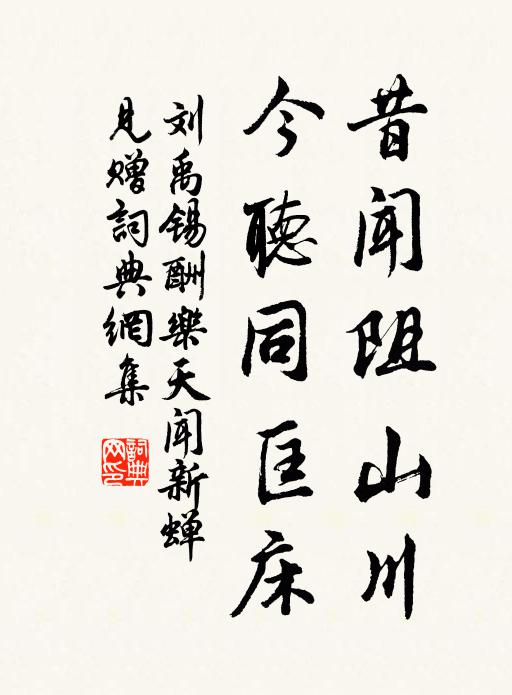 昔闻阻山川
今聽同匡床
刘禹锡酬樂天闻新蝉
見贈詞典網集
詞典网印